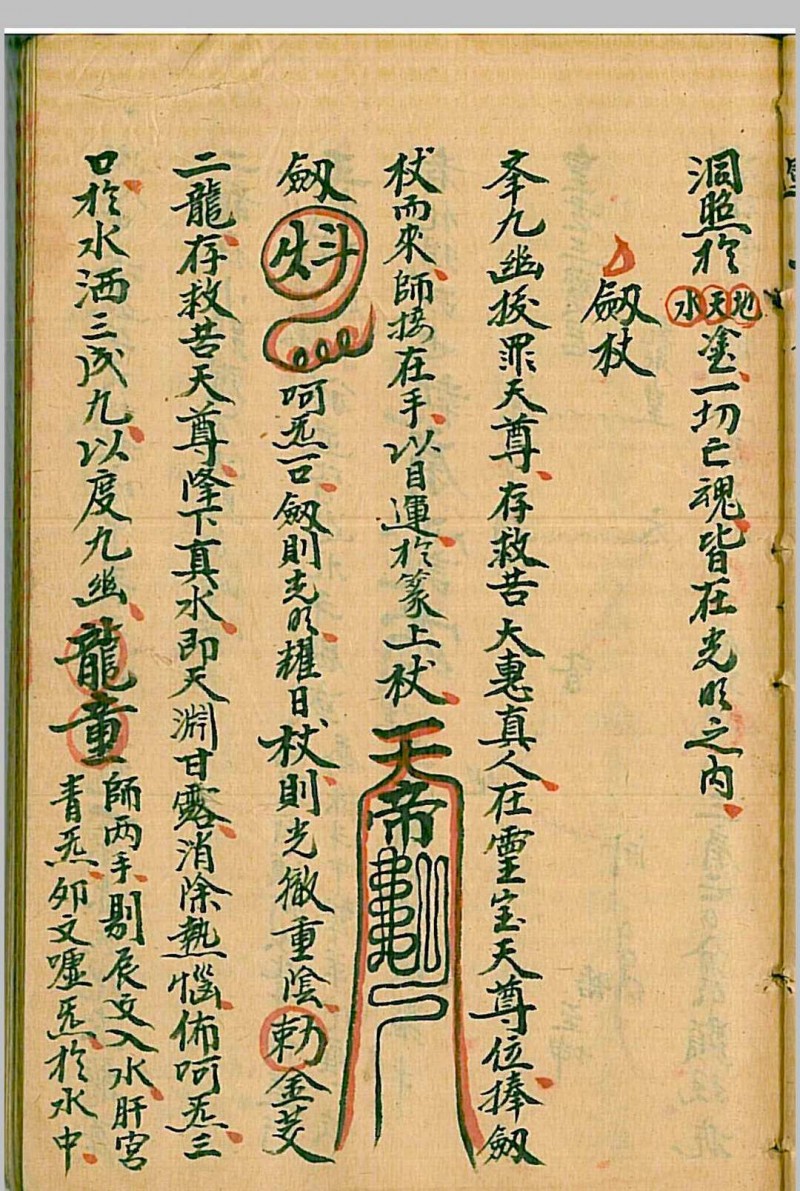 洞照於地天水塗一切亡魂皆在光明之內
劔杖
奉九幽拔罪天尊存救苦大惠真人在靈宝天尊位捧劔
杖而來師接在手以目運於篆上杖天帝
劔呵炁一口劔則光明耀日杖則光徹重陰勅金芠
二龍存救苦天尊降下真水即天淵甘露消除熱惱佈呵炁三
口於水洒三成九以度九幽龍童
師两手剔辰文入水肝宮
青炁夘文嘘炁於水中